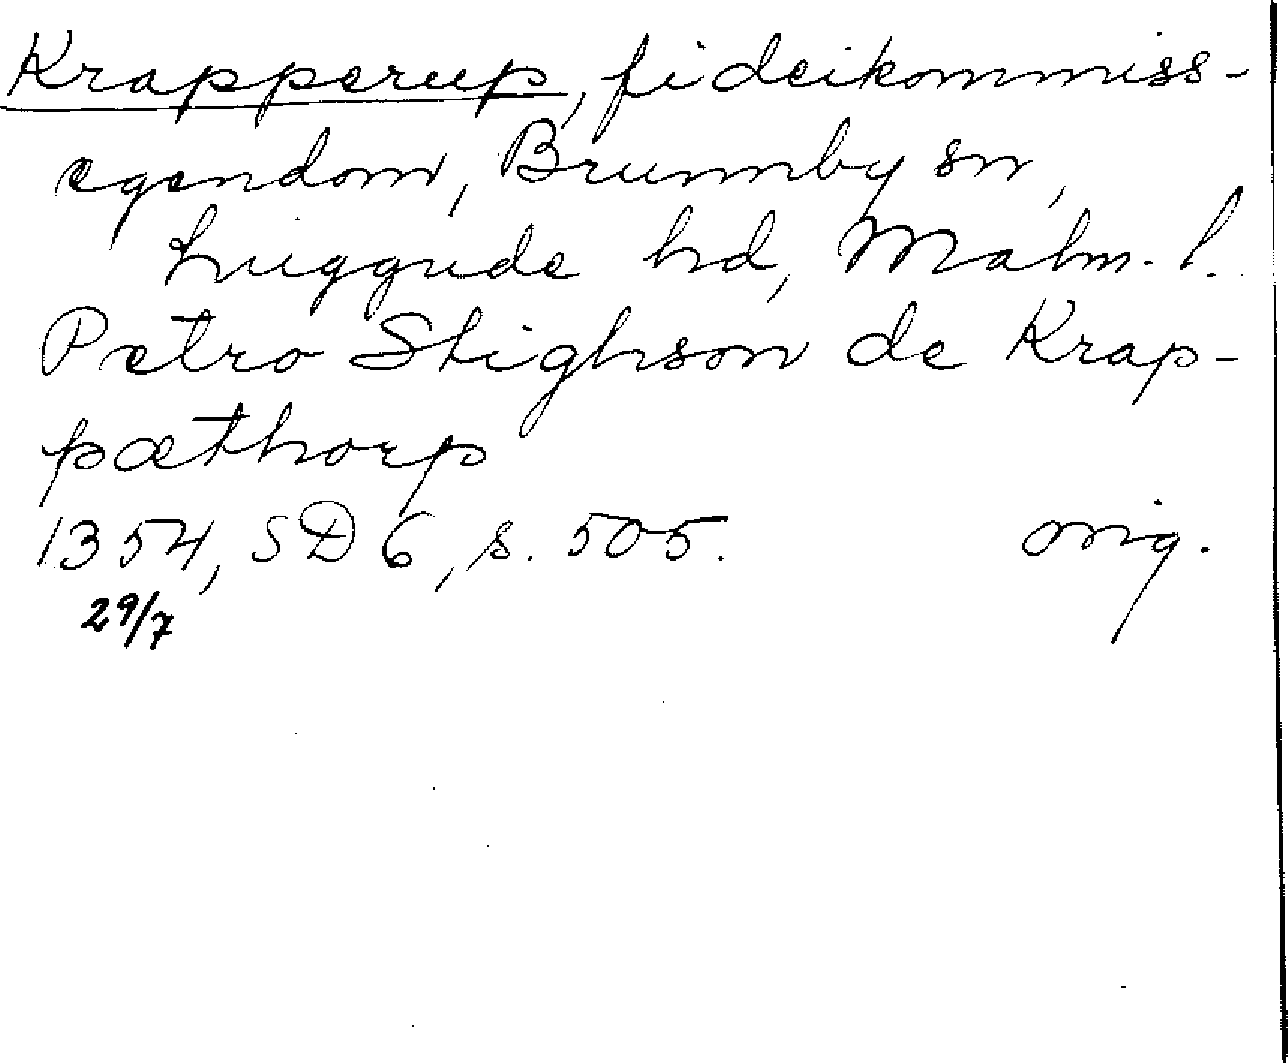 Krapperup, fideikommiss-
egendom, Brunnby sn,
Luggude hd, Malm. l.
Petro Stighson de Krap-
pæthorp
1354, SD 6, s. 505. orig.
29/7